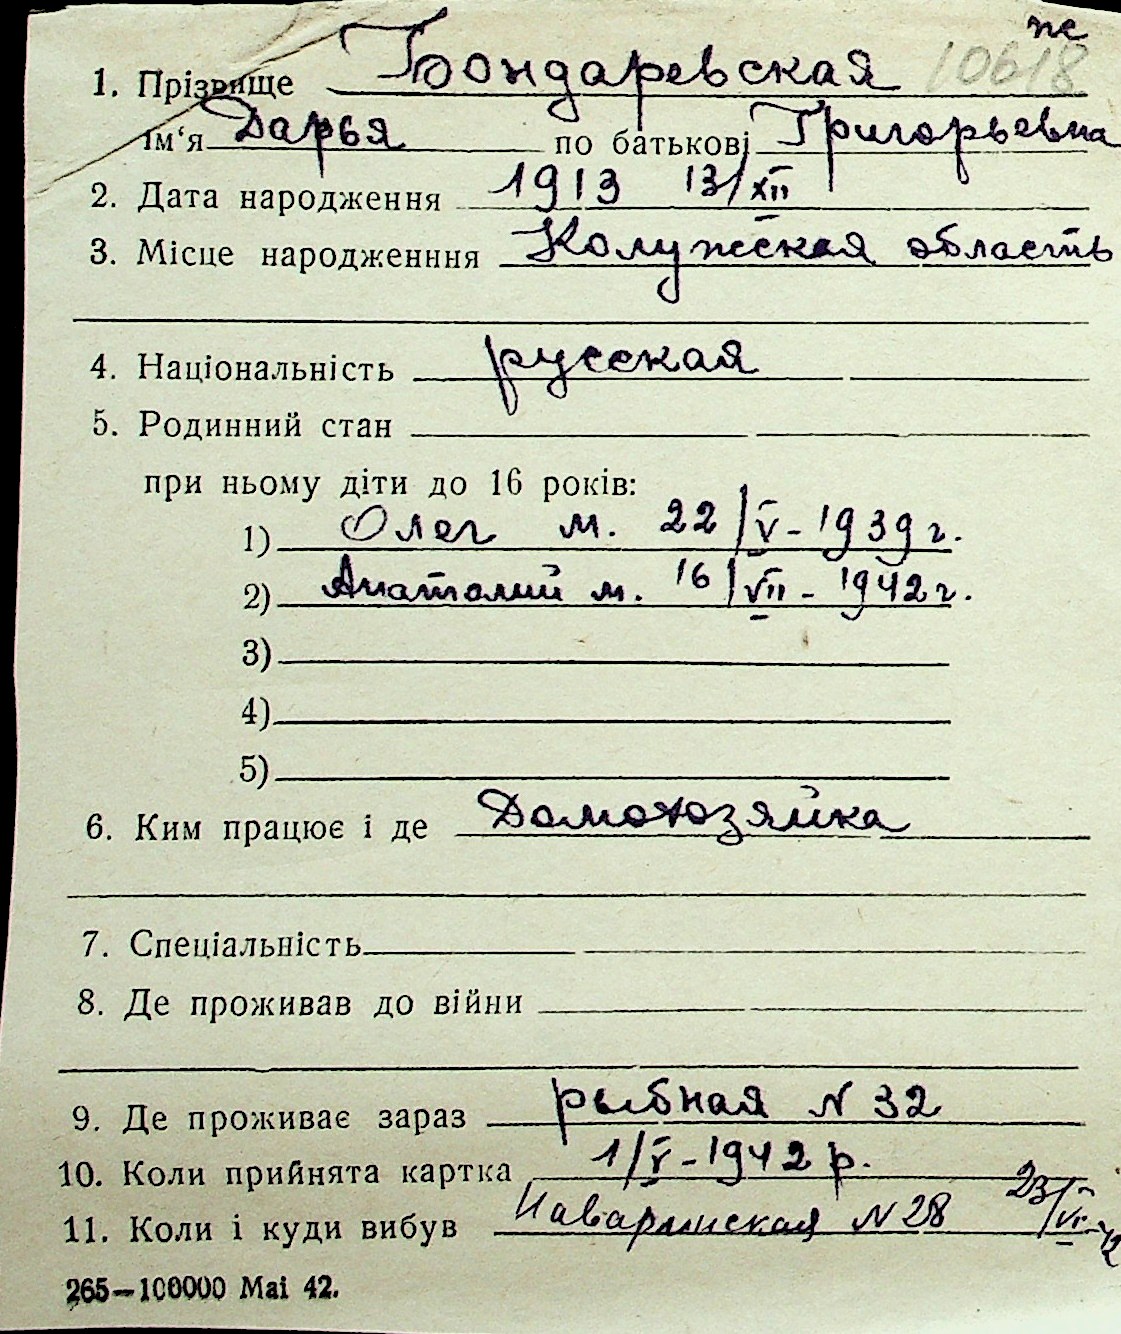 ж
1. Прізвище Бондаревская 10618
Ім‘я Дарья по батькові Григорьевна
2. Дата народження 1913 13/XII
3. Місце народженння Калужская область
4. Національність русская
5. Родинний стан
при ньому діти до 16 років:
1) Олег м. 22/V - 1939 г.
2) Анатолий м. 16/VII - 1942 г.
3)
4)
5)
6. Ким працює і де Домохозяйка
7. Спеціальність
8. Де проживав до війни
9. Де проживає зараз рыбная N 32
10. Коли прийнята картка 1/V - 1942 р.
11. Коли і куди вибув Наваринская N 28 23/VI-42
265—100000 Mai 42.